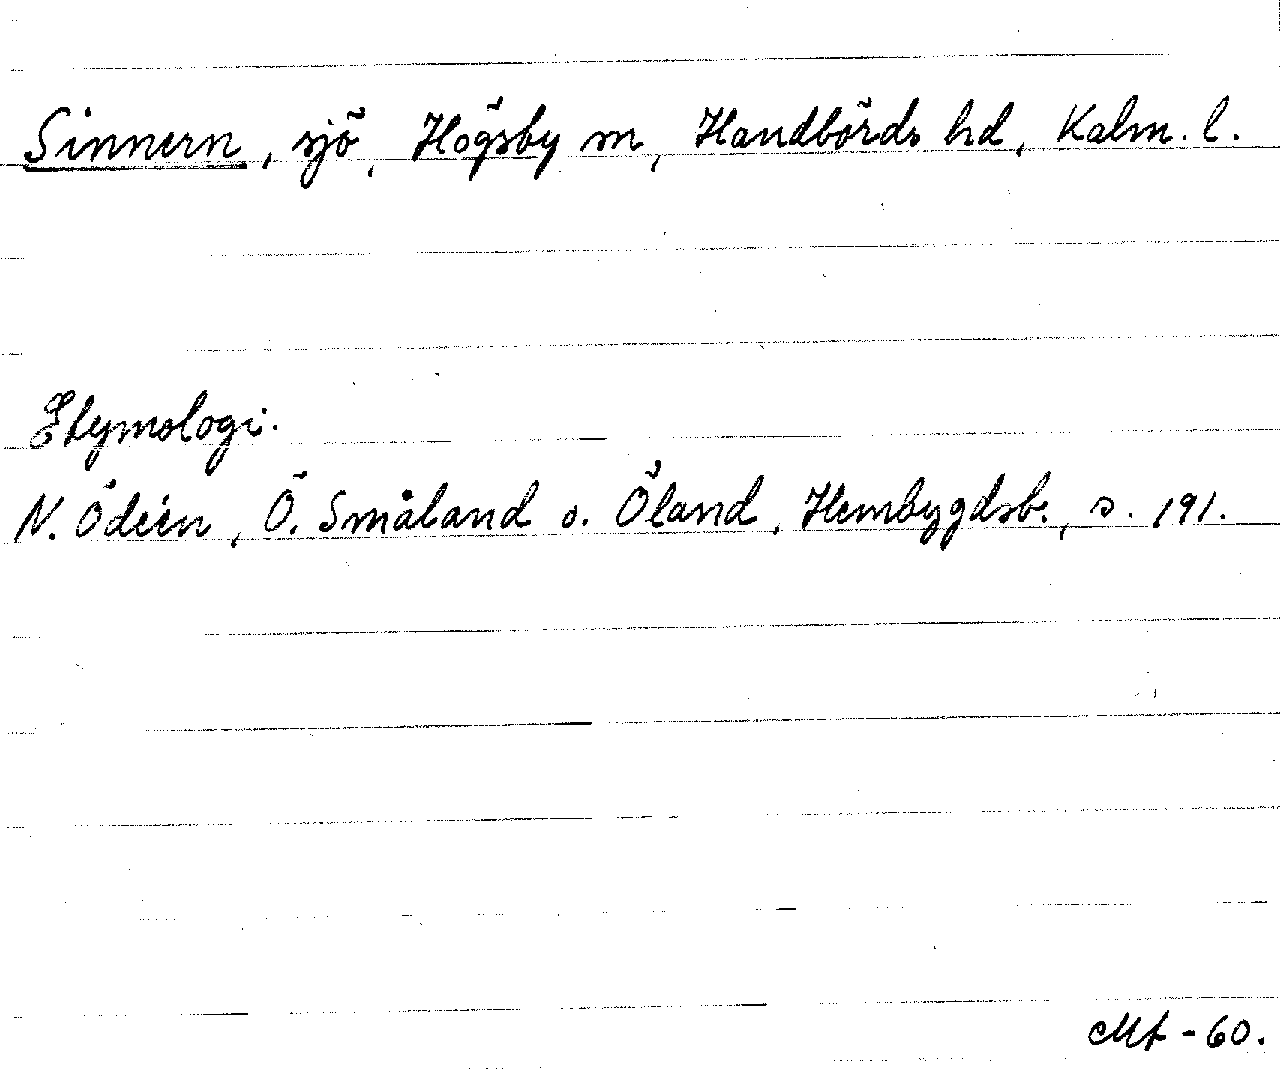 Sinnern, sjö, Högsby sn, Handbörds hd, Kalm. l.
Etymologi.
N. Ödéen, Ö. Småland o. Öland, Hembygdsb., s. 191.
-60.